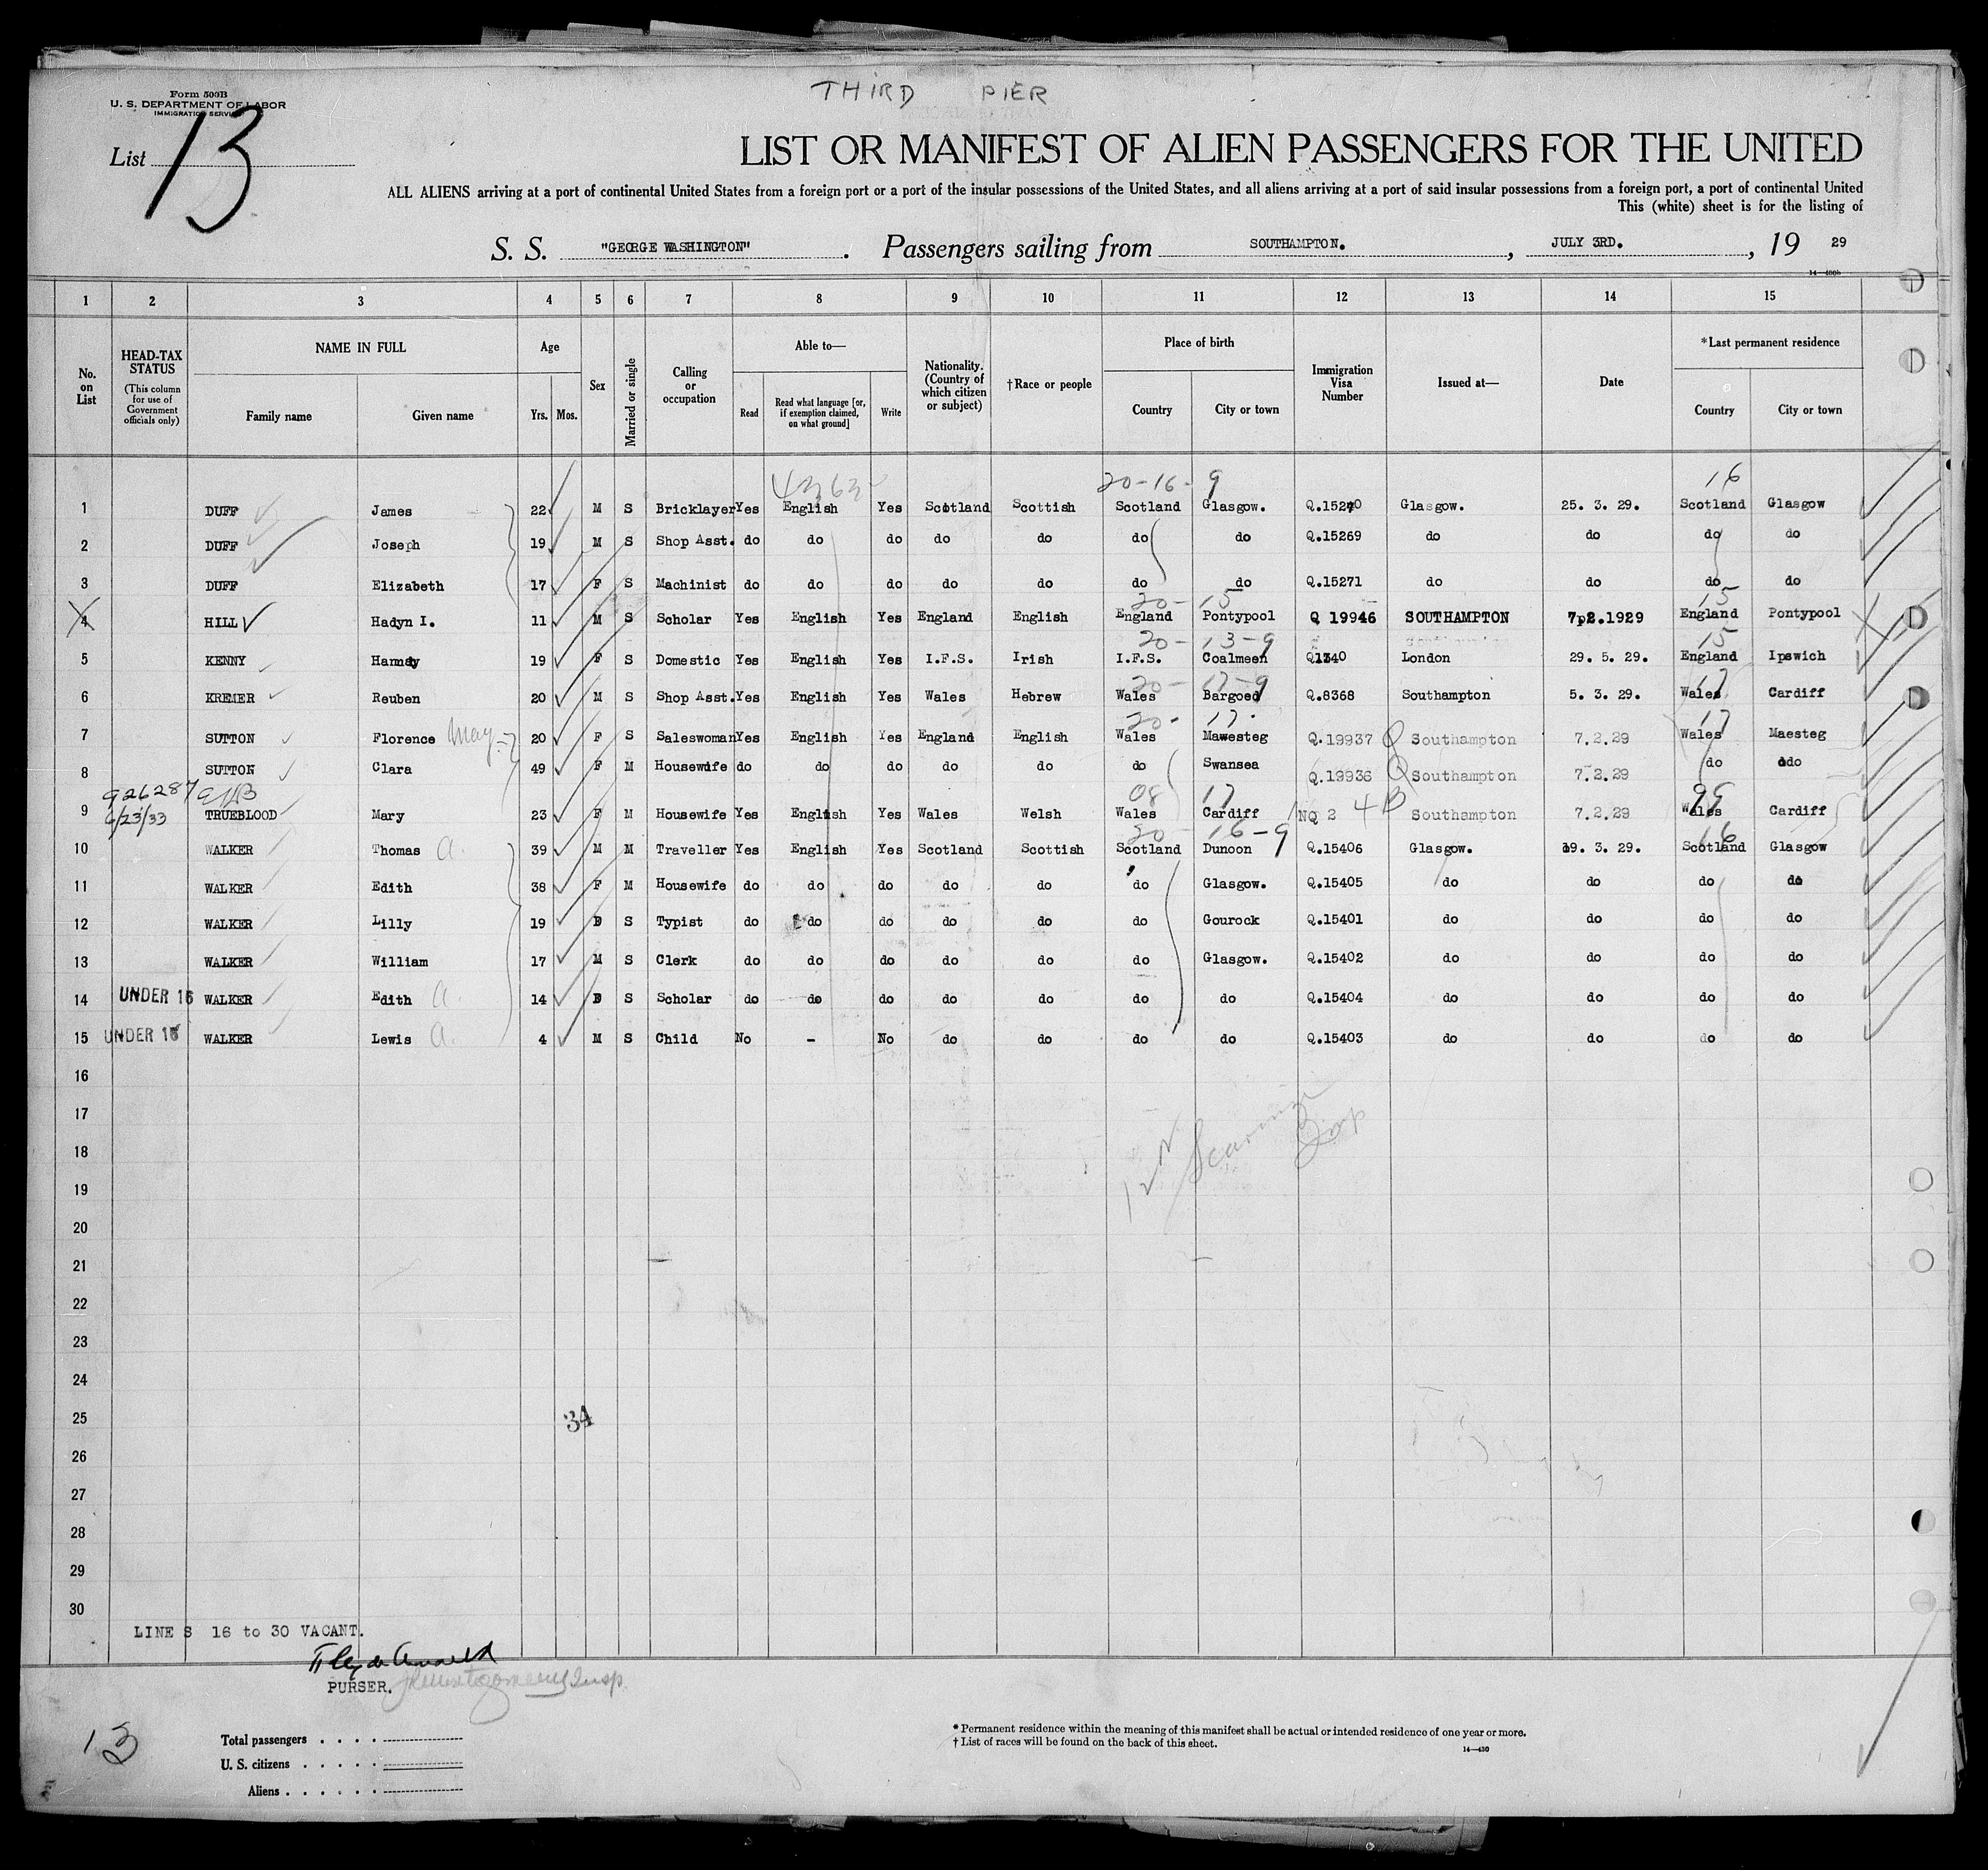 THIRD PIER
Form 500B
U. S. DEPARTMENT OF LABOR
IMMIGRATION SERVICE
List 13
LIST OR MANIFEST OF ALIEN PASSENGERS FOR THE UNITED
ALL ALIENS arriving at a port of continental United States from a foreign port or a port of the insular possessions of the United States, and all aliens arriving at a port of said insular possessions from a foreign port, a port of continental United
This (white) sheet is for the listing of
S. S. "GEORGE WASHINGTON". Passengers sailing from SOUTHAMPTON., JULY 3RD., 19 29
1 2 3 4 5 6 7 8 9 10 11 12 13 14 15
No. on List
HEAD-TAX STATUS (This column for use of Government officials only)
NAME IN FULL Family name Given name
Age Yrs. Mos.
Sex
Married or single
Calling or occupation
Able to— Read Read what language [or, if exemption claimed, on what ground] Write
Nationality. (Country of which citizen or subject)
†Race or people
Place of birth Country City or town
Immigration Visa Number
Issued at—
Date
*Last permanent residence Country City or town
20-16-9 16
1 DUFF James 22 M S Bricklayer Yes English Yes Scotland Scottish Scotland Glasgow. Q.15270 Glasgow. 25. 3. 29. Scotland Glasgow
2 DUFF Joseph 19 M S Shop Asst. do do do do do do do Q.15269 do do do do
3 DUFF Elizabeth 17 F S Machinist do do do do do do do Q.15271 do do do do
20- 15 15
4 HILL Hadyn I. 11 M S Scholar Yes English Yes England English England Pontypool Q 19946 SOUTHAMPTON 7.2.1929 England Pontypool
20- 13-9 15
5 KENNY 19 F S Domestic Yes English Yes I.F.S. Irish I.F.S. Coalmeen Q1340 London 29. 5. 29. England Ipswich
20- 17-9 17
6 KREMER Reuben 20 M S Shop Asst. Yes English Yes Wales Hebrew Wales Bargoed Q.8368 Southampton 5. 3. 29. Wales Cardiff
20- 17. 17
7 SUTTON Florence May 20 F S Saleswoman Yes English Yes England English Wales Mawesteg Q.19937 Southampton 7.2.29 Wales Maesteg
8 SUTTON Clara 49 F M Housewife do do do do do do Swansea Q.19936 Southampton 7.2.29 do do
926287 08 17 99
6/23/33
9 TRUEBLOOD Mary 23 F M Housewife Yes English Yes Wales Welsh Wales Cardiff NQ 2 4B Southampton 7.2.29 Wales Cardiff
20- 16-9 16
10 WALKER Thomas A. 39 M M Traveller Yes English Yes Scotland Scottish Scotland Dunoon Q.15406 Glasgow. 19. 3. 29. Scotland Glasgow
11 WALKER Edith 38 F M Housewife do do do do do do Glasgow. Q.15405 do do do do
12 WALKER Lilly 19 S Typist do do do do do do Gourock Q.15401 do do do do
13 WALKER William 17 M S Clerk do do do do do do Glasgow. Q.15402 do do do do
14 UNDER 16 WALKER Edith A. 14 S Scholar do do do do do do do Q.15404 do do do do
15 UNDER 16 WALKER Lewis A. 4 M S Child No - No do do do do Q.15403 do do do do
16
17
18
19
20
21
22
23
24
25
34
26
27
28
29
30
LINE S 16 to 30 VACANT.
PURSER.
13
Total passengers
U. S. citizens
Aliens
* Permanent residence within the meaning of this manifest shall be actual or intended residence of one year or more.
† List of races will be found on the back of this sheet.
14—430